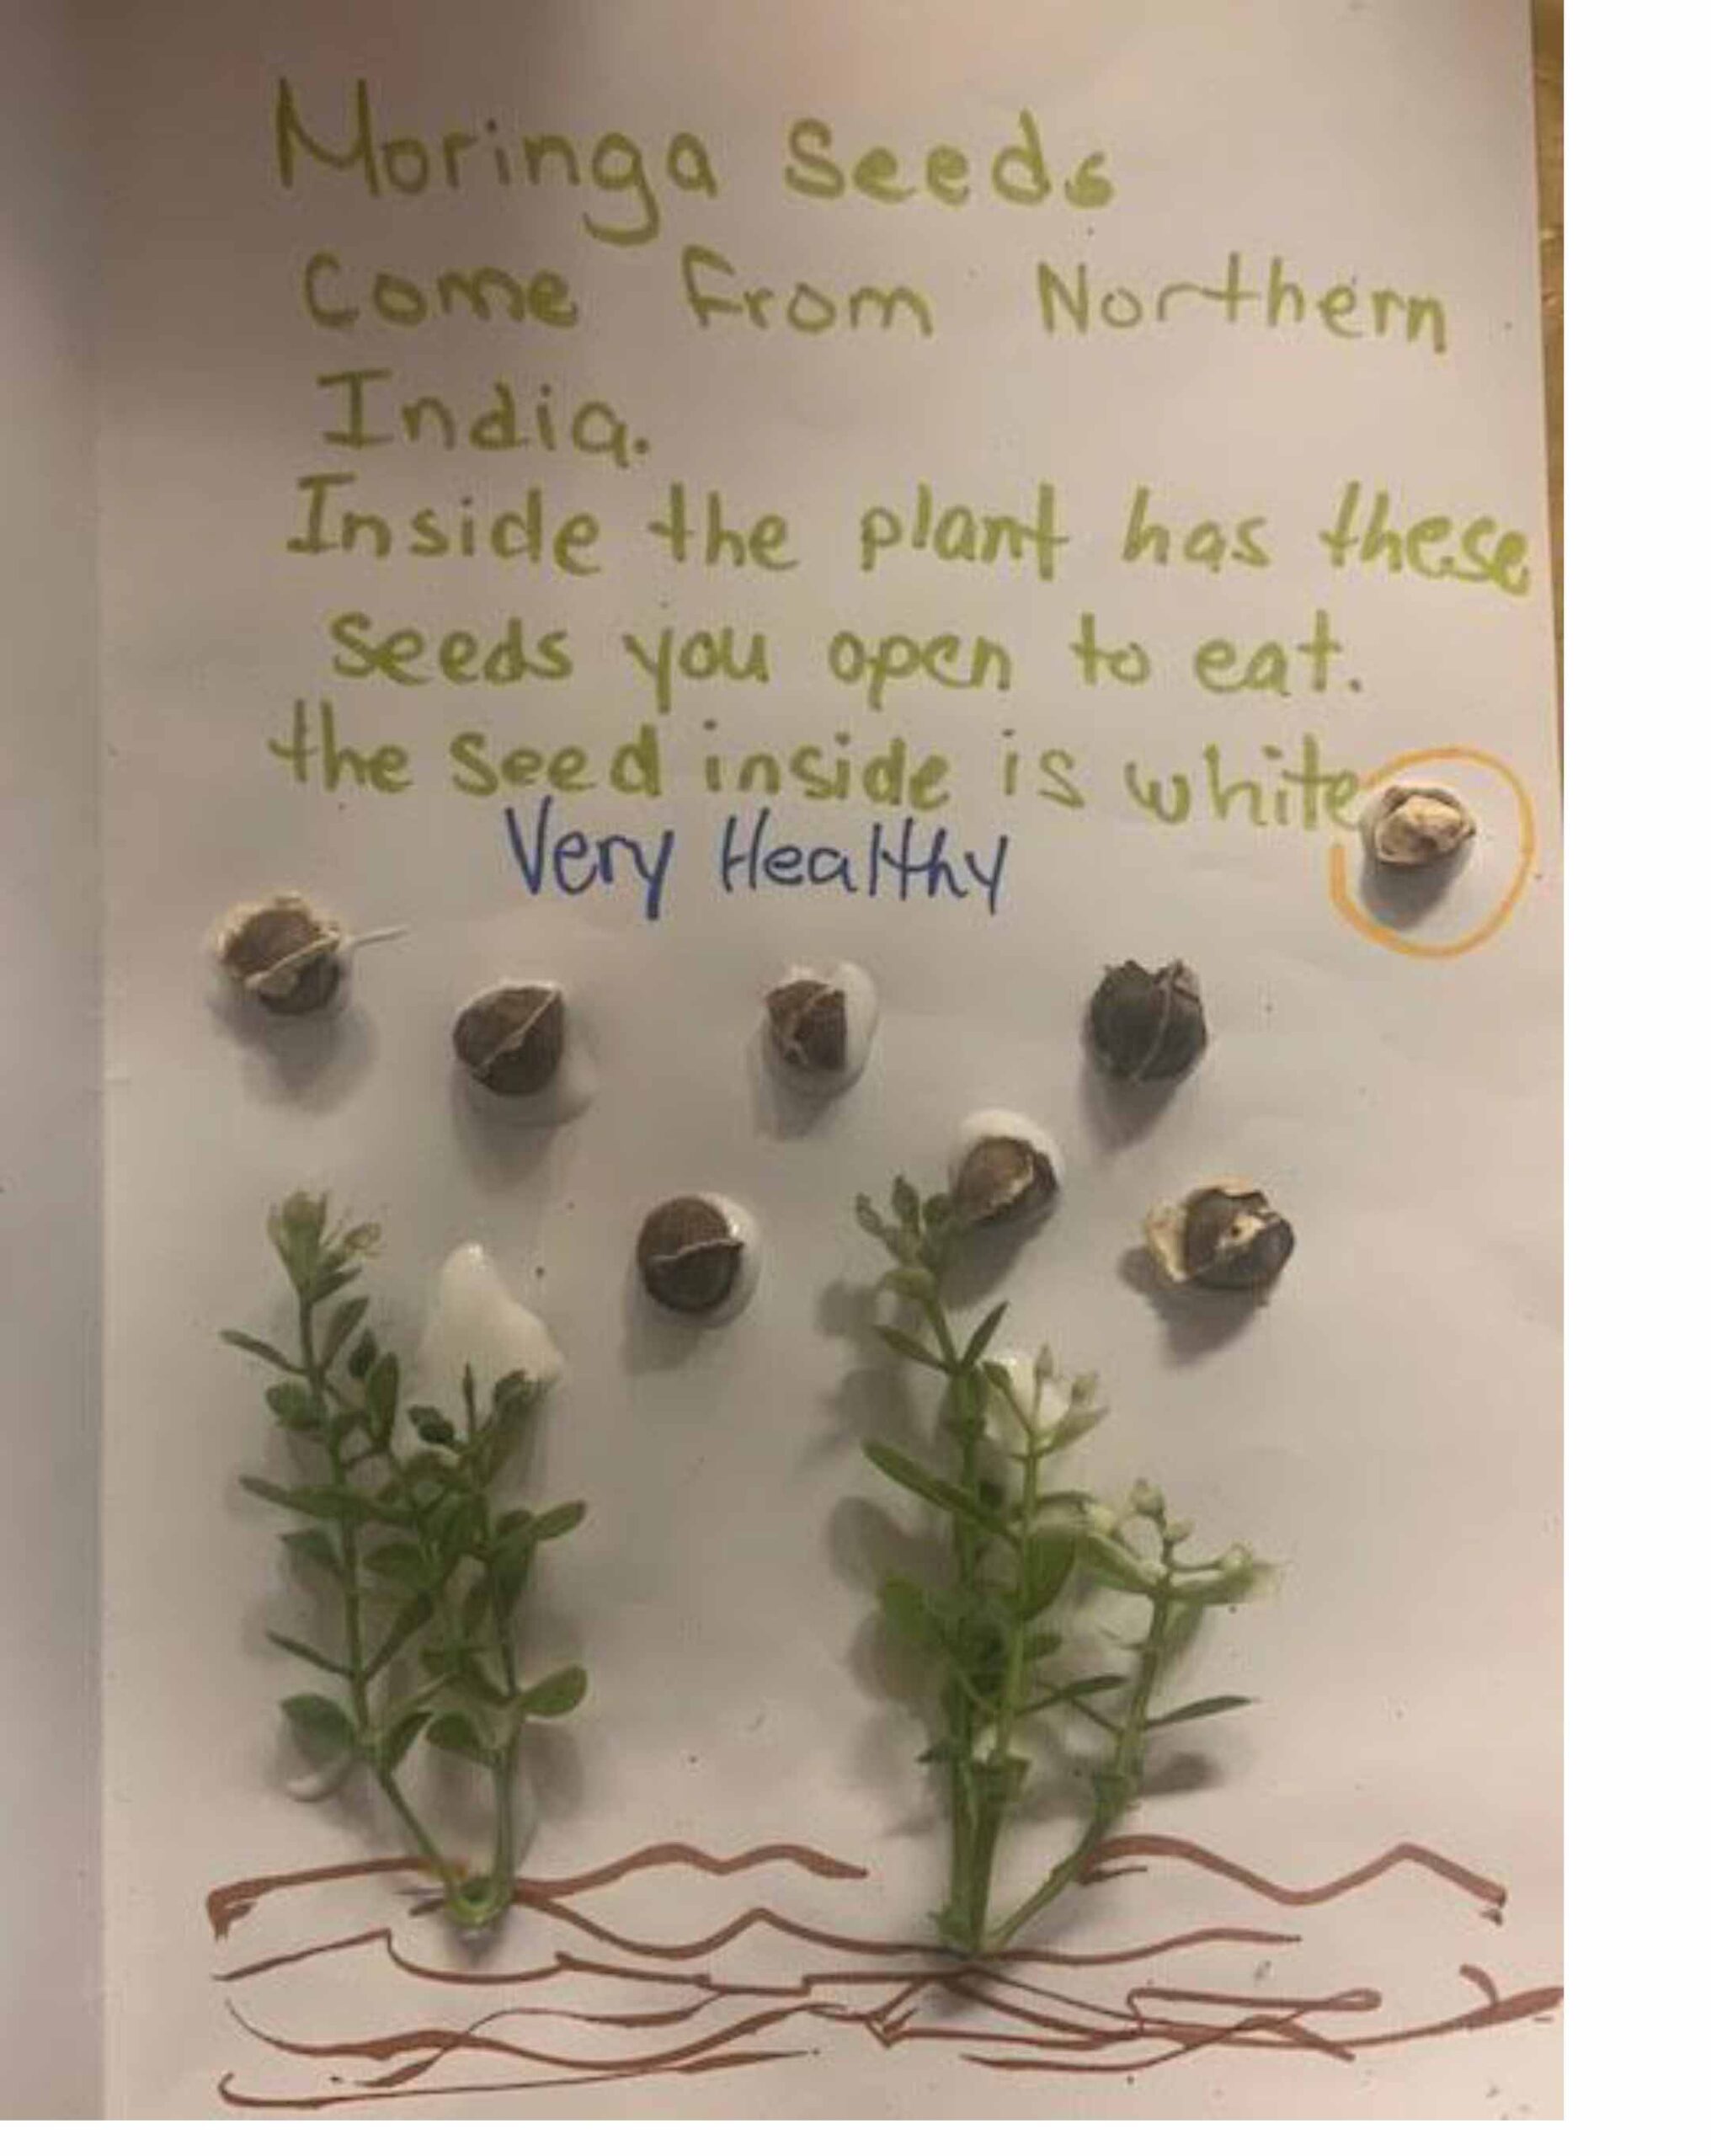 Moringa Seeds
Come from Northern
India.
Inside the plant has these
seeds you open to eat.
the seed inside is white
Very Healthy